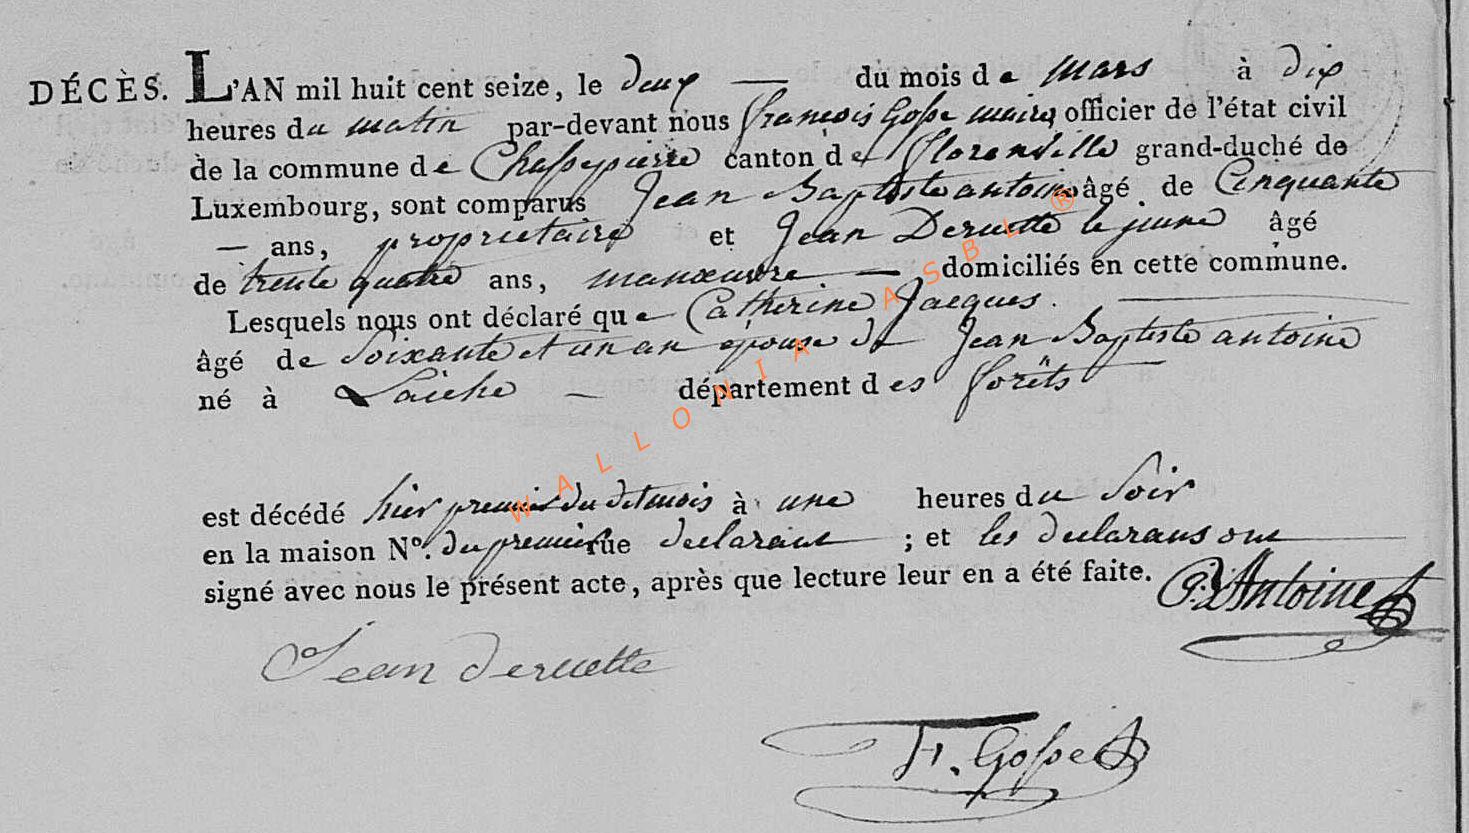 DÉCÈS. L'AN mil huit cent seize, le deux — du mois de Mars à dix
heures du matin par-devant nous françois Gosse maire officier de l'état civil
de la commune de Chassepierre canton de florenville grand-duché de
Luxembourg, sont comparus Jean Baptiste antoine âgé de Cinquante
— ans, proprietaire et Jean Deruette le jeune âgé
de trente quatre ans, manœuvre — domiciliés en cette commune.
Lesquels nous ont déclaré que Catherine Jacques.
âgé de Soixante et un an epouse de Jean Baptiste antoine
né à Laiche — département des forêts
est décédé hier premier du dit mois à une heures du Soir
en la maison N°. du premier rue declarant ; et les declarans ont
signé avec nous le présent acte, après que lecture leur en a été faite.
Antoine
Jean deruette
F. Gosse
WALLONIA ASBL ®